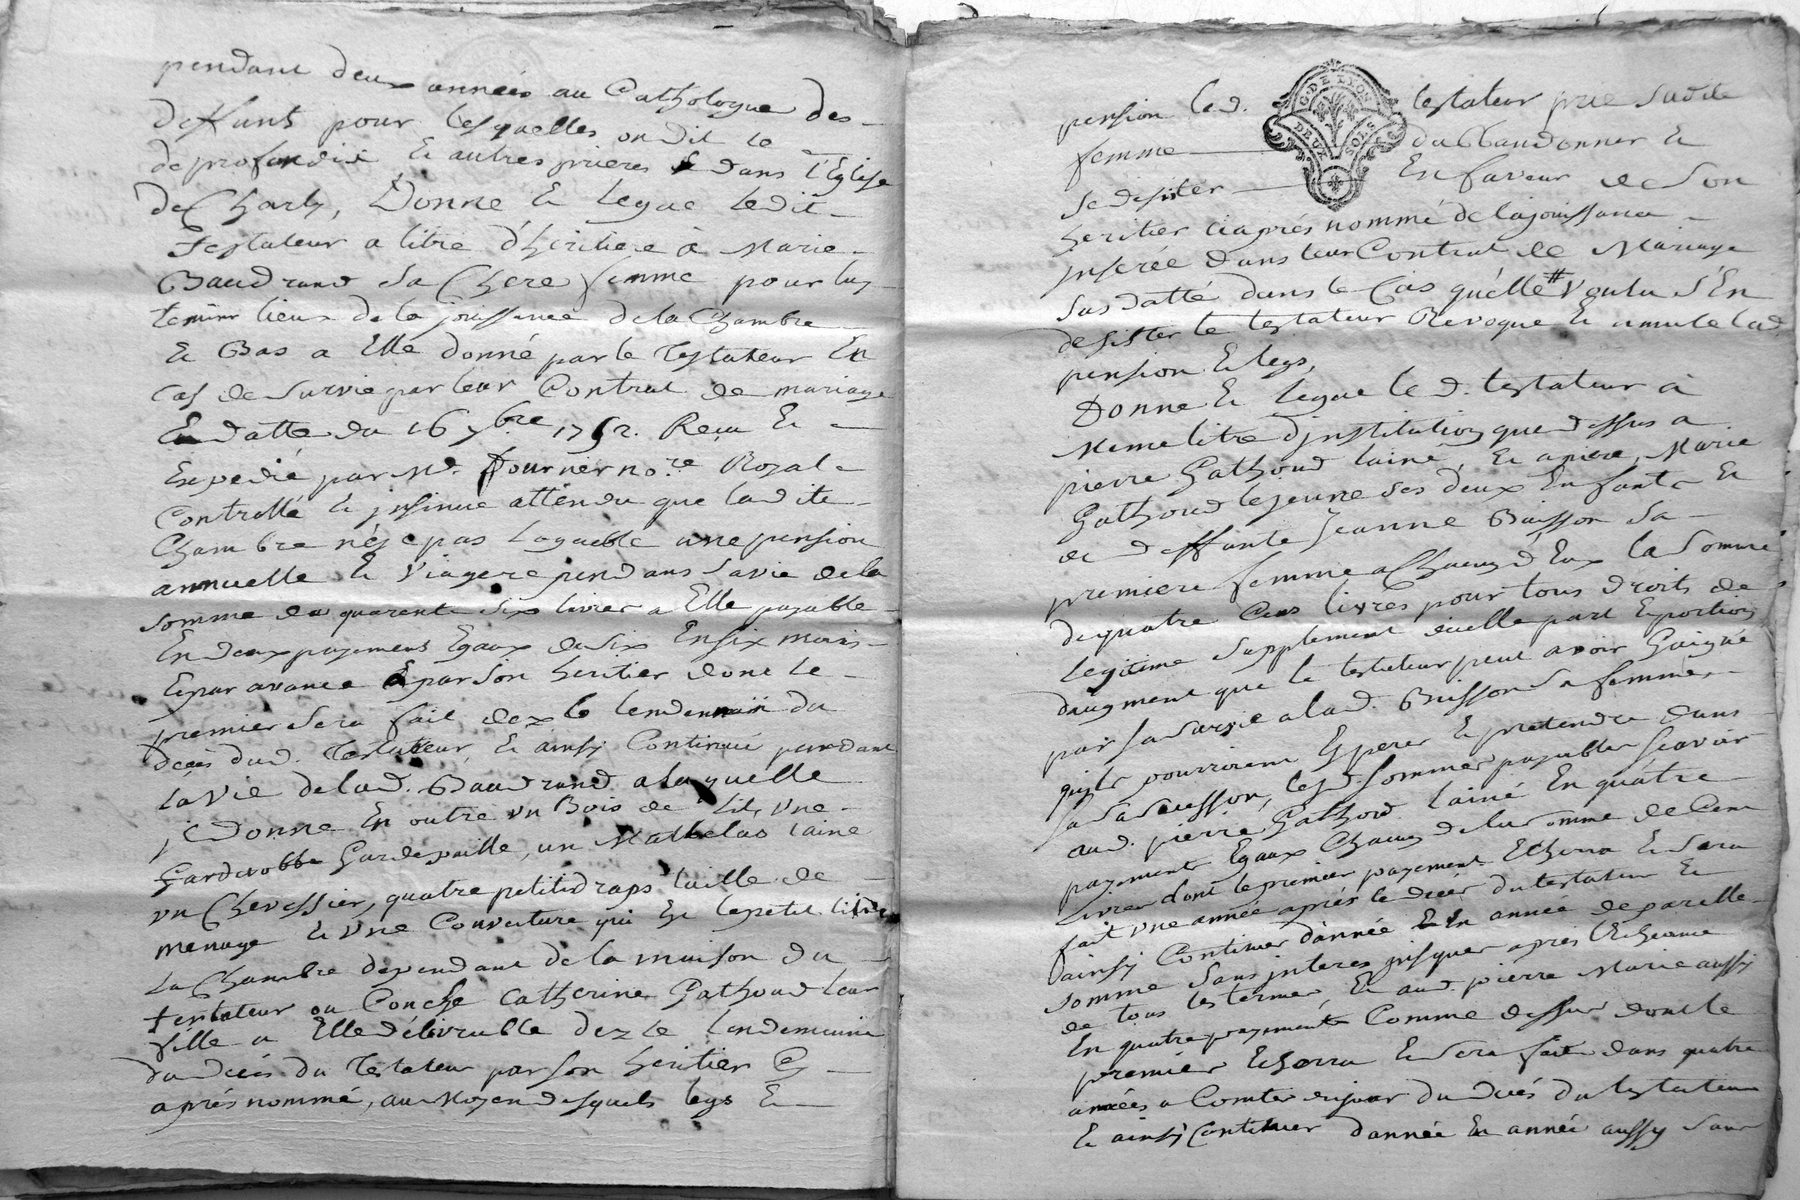 pendant deux années au Cathologue des
deffunts pour lesquelles on dit le
de profondis & autres prieres dans l'Eglise
de Charly, Donne & legue ledit
testateur a titre d'heritiere à Marie
Baudrand sa Chere femme pour luy
tenir lieux de la jouissance de la Chambre
& Bas a Elle donné par le Testateur En
cas de survie par leur Contrat de mariage
En datte du 16 7bre 1752. Reçu &
Expedié par Me. fournier nore Royal
Controllé & jnsinué attendu que ladite
Chambre n'este pas logeable une pension
annuelle & viagere pendans sa vie de la
somme de quarente six livres a Elle payable
En deux payements Egaux de six En six mois
& par avance & par son heritier dont le
premier sera fait dez le lendemain du
decès dud. Testateur, & ainsy Continué pendant
la vie de lad. Baudrand a laquelle
jl Donne En outre un Bois de Lit, une
Garderobbe Gardepaille, un Mathelas laine
un Chevessier, quatre petits draps toille de
menage & une Couverture qui Est le petit lit de
la Chambre dependant de la maison du
testateur ou Couche Catherine Gathoud leur
fille a Elle délivrable dez le lendemain
du decès du Testateur par son heritier Cy
aprés nommé, au Moyen desquels legs &
pension led. testateur prie sadite
femme d'abbandonner &
se desister En faveur de son
heritier ciaprés nommé de la jouissance
jnserée dans leur Contrat de Mariage
sus datté dans le Cas qu'elle # voulu s'En
desister le testateur Revoque & annule lad.
pension & legs,
Donne & legue led. testateur à
Meme titre d'jnstitution que dessus a
pierre Gathoud lainé, & a piere Marie
Gathoud le jeune ses deux Enfants &
de deffunte Jeanne Buisson sa
premiere femme a Chacun d'Eux la somme
de quatre Cens livres pour tous droits de
legitime supplement d'icelle part & portion
d'augment que le testateur peut avoir Gaigné
par sa survie a lad. Buisson sa femme
qu'ils pourroient Esperer & pretendre dans
sa succession, lesd. sommes payables sçavoir
aud. pierre Gathoud lainé En quatre
payements Egaux Chacun de la somme de Cent
Livres dont le premier payement Echerra & sera
fait une année aprés le decés du testateur &
ainsy Continuer d'année En année de pareille
somme sans jnterés jusques après l'Echeance
de tous les termes & aud. pierre Marie aussy
En quatre payements Comme dessus dont le
premier Echerra & sera fait dans quatre
années a Comter du jour du decés du testateur
& ainsy Continuer d'année En année aussy sans
G. DE LYON
DEUX SOLS